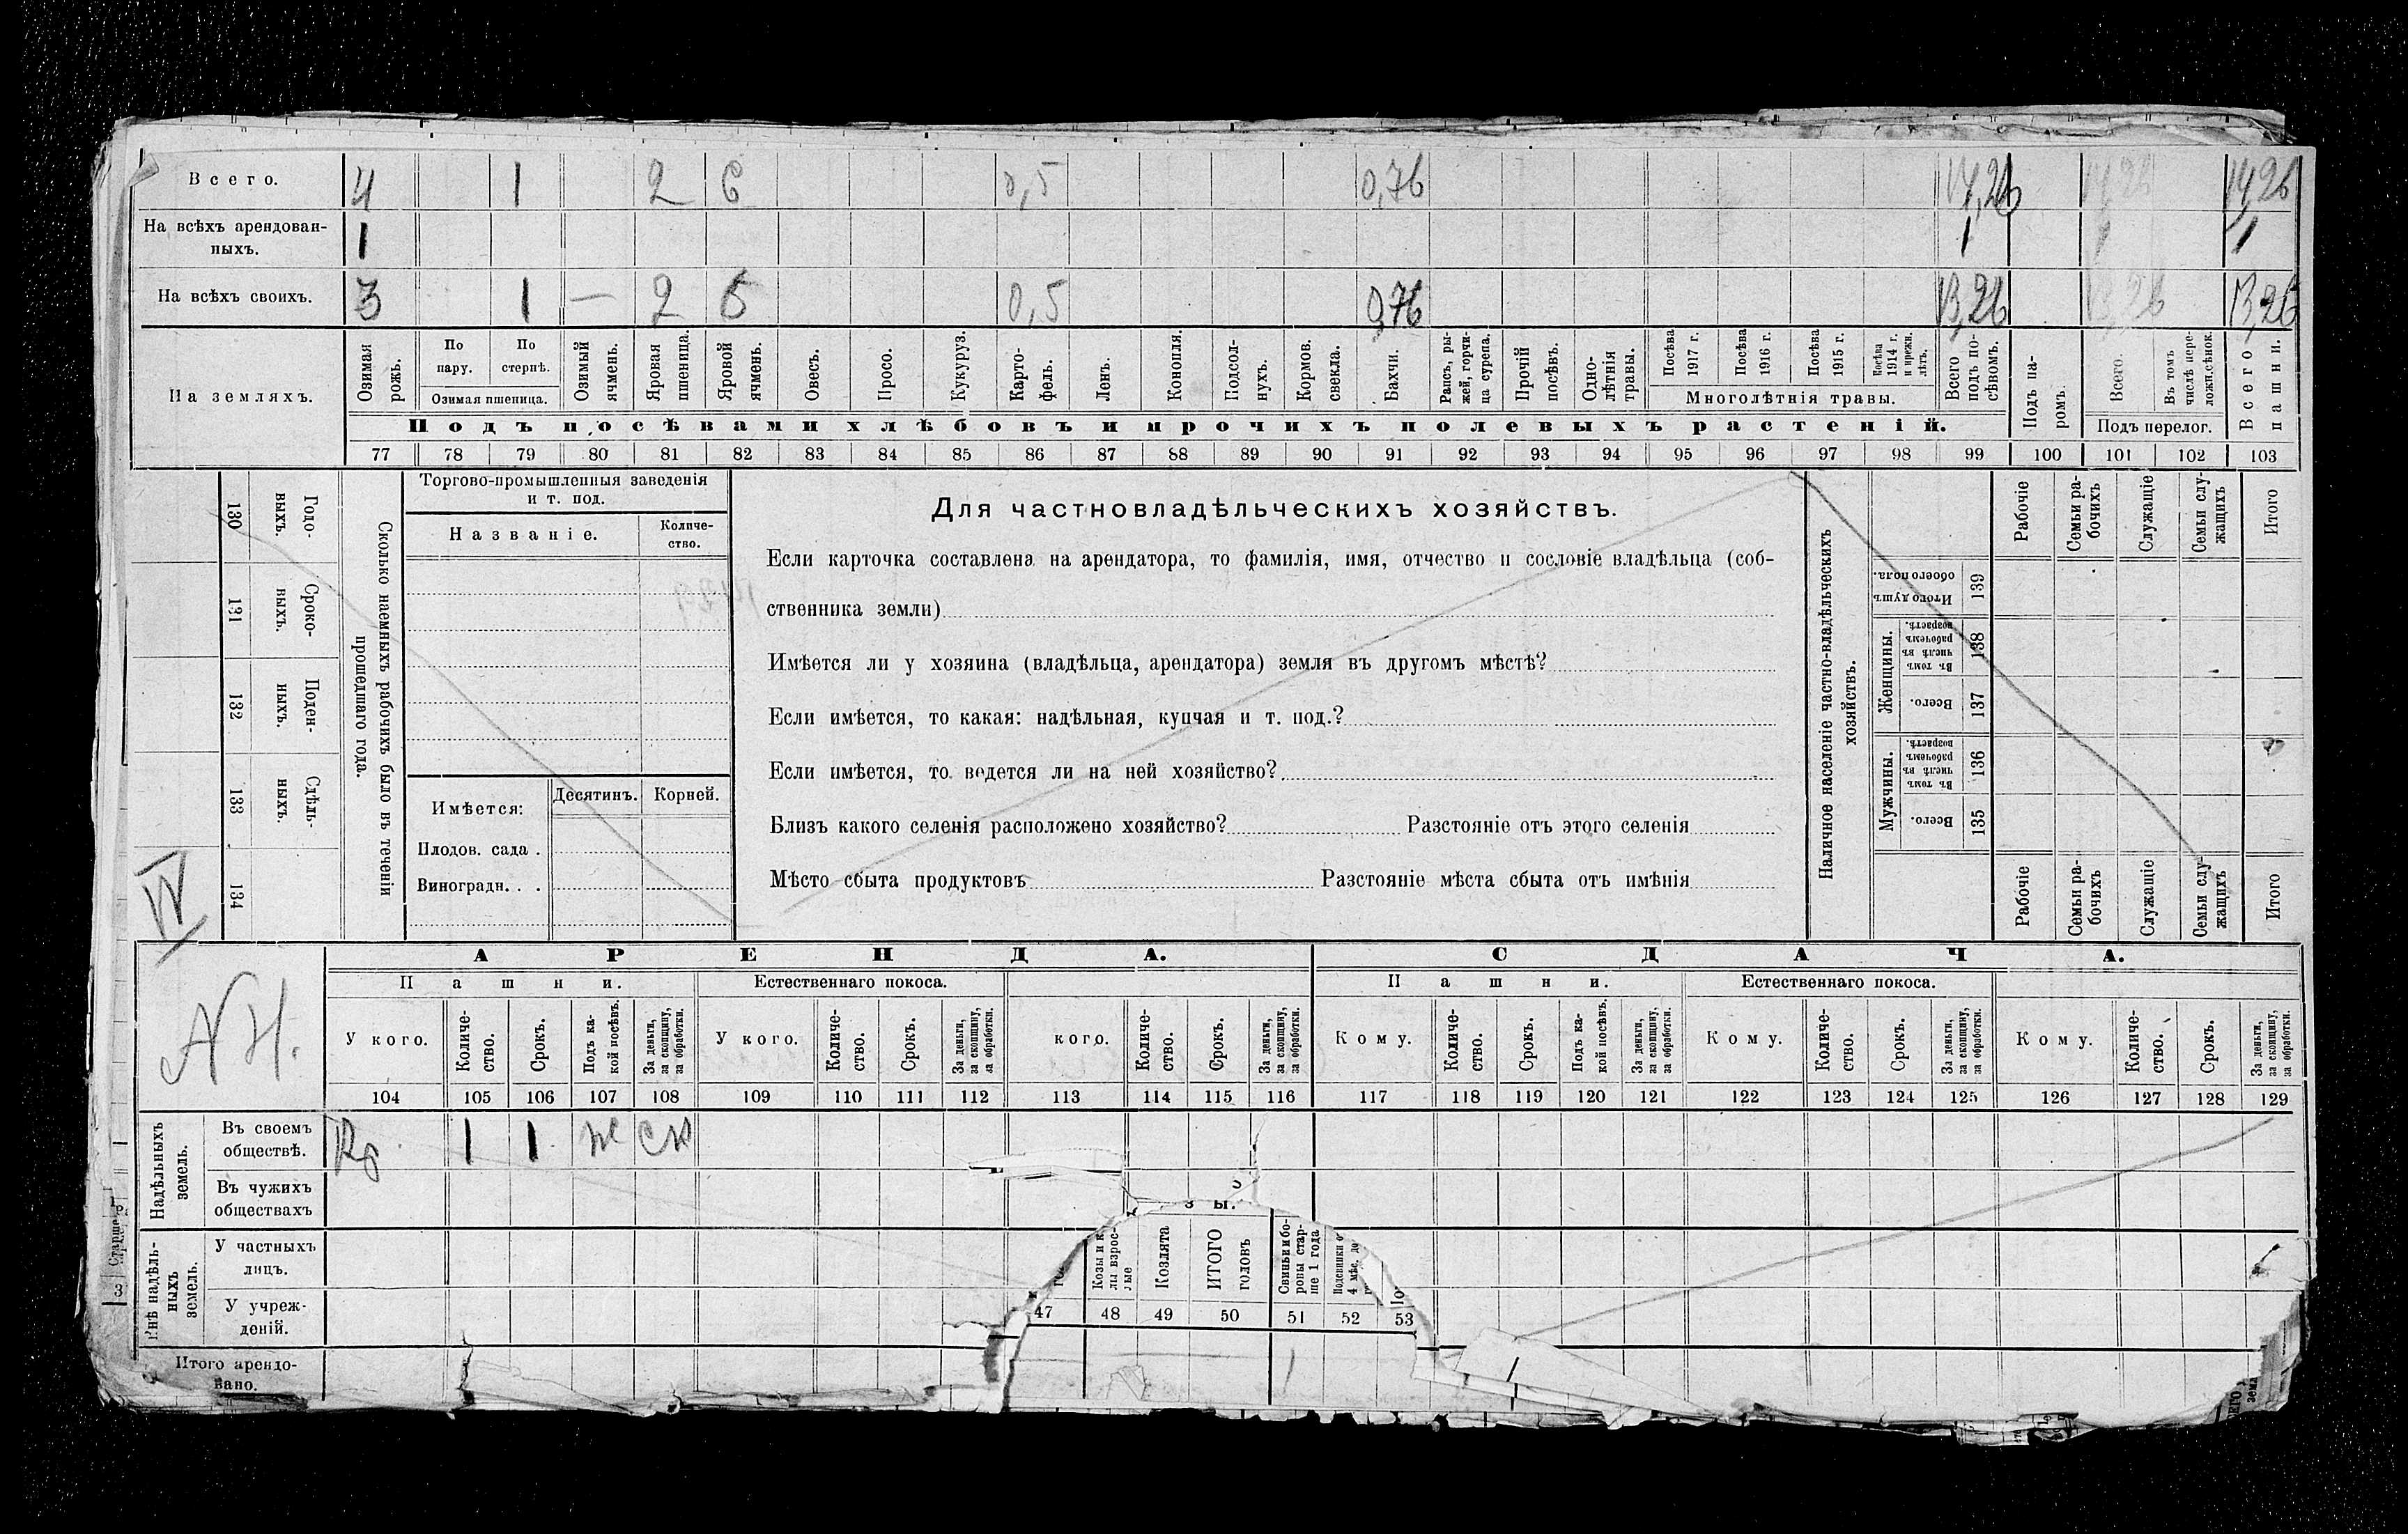 Всего. 4 1 2 6 0,5 0,76 14,26 14,26 14,26
На всѣхъ арендован-
ныхъ. 1 1 1 1
На всѣхъ своихъ. 3 1 — 2 6 0,5 0,76 13,26 13,26 13,26
На земляхъ.
Озимая рожь.
По пару.
По стернѣ.
Озимая пшеница.
Озимый ячмень.
Яровая пшеница.
Яровой ячмень.
Овесъ.
Просо.
Кукуруз.
Карто-
фель.
Ленъ.
Конопля.
Подсол-
нухъ.
Кормов. свекла.
Бахчи.
Рапсъ, ры-
жей, горчи-
ца сурепа.
Прочій посѣвъ.
Одно-
лѣтнія травы.
Посѣва 1917 г.
Посѣва 1916 г.
Посѣва 1915 г.
Посѣва 1914 г. и прежн. лѣтъ.
Многолѣтнія травы.
Всего подъ по-
сѣвомъ.
Подъ па-
ромъ.
Всего.
Въ томъ числѣ пере-
ложн.сѣнок.
Подъ перелог.
Всего пашни.
Подъ посѣвами хлѣбовъ и прочихъ полевыхъ растеній.
77 78 79 80 81 82 83 84 85 86 87 88 89 90 91 92 93 94 95 96 97 98 99 100 101 102 103
130 Годо-
ныхъ.
131 Сроко-
ныхъ.
132 Поден-
ныхъ.
133 Сдѣль-
ныхъ.
134
Сколько наемныхъ рабочихъ было въ теченіи
прошедшаго года.
Торгово-промышленныя заведенія
и т. под.
Названіе.
Количе-
ство.
Имѣется:
Десятинъ. Корней.
Плодов. сада .
Виноградн. . .
Для частновладѣльческихъ хозяйствъ.
Если карточка составлена на арендатора, то фамилія, имя, отчество и сословіе владѣльца (соб-
ственника земли)
Имѣется ли у хозяина (владѣльца, арендатора) земля въ другомъ мѣстѣ?
Если имѣется, то какая: надѣльная, купчая и т. под.?
Если имѣется, то ведется ли на ней хозяйство?
Близъ какого селенія расположено хозяйство? Разстояніе отъ этого селенія
Мѣсто сбыта продуктовъ Разстояніе мѣста сбыта отъ имѣнія
Наличное населеніе частно-владѣльческихъ
хозяйствъ.
Рабочіе
Семьи ра-
бочихъ
Служащіе
Семьи слу-
жащихъ
Итого
Итого душъ обоего пола. 139
Женщины.
Въ томъ числѣ въ рабочемъ возрастѣ. 138
Всего. 137
Мужчины.
Въ томъ числѣ въ рабочемъ возрастѣ. 136
Всего. 135
Рабочіе
Семьи ра-
бочихъ
Служащіе
Семьи слу-
жащихъ
Итого
IV
АРЕНДА. СДАЧА.
Пашни. Естественнаго покоса. Пашни. Естественнаго покоса.
У кого.
Количе-
ство.
Срокъ.
Подъ ка-
кой посѣвъ.
За деньги,
за скопщину,
за обработки.
У кого.
Количе-
ство.
Срокъ.
За деньги,
за скопщину,
за обработки.
кого.
Количе-
ство.
Срокъ.
За деньги,
за скопщину,
за обработки.
Кому.
Количе-
ство.
Срокъ.
Подъ ка-
кой посѣвъ.
За деньги,
за скопщину,
за обработки.
Кому.
Количе-
ство.
Срокъ.
За деньги,
за скопщину,
за обработки.
Кому.
Количе-
ство.
Срокъ.
За деньги,
за скопщину,
за обработки.
104 105 106 107 108 109 110 111 112 113 114 115 116 117 118 119 120 121 122 123 124 125 126 127 128 129
Надѣльныхъ
земель.
Въ своемъ
обществѣ. 1 1 ск
Въ чужихъ
обществахъ
Внѣ надѣль-
ныхъ
земель.
У частныхъ
лицъ.
У учреж-
деній.
Итого арендо-
вано.
зы.
Козлята
ИТОГО
головъ
Свиньи и бо-
ровы стар-
ше 1 года
47 48 49 50 51 52 53
1
Старше
3